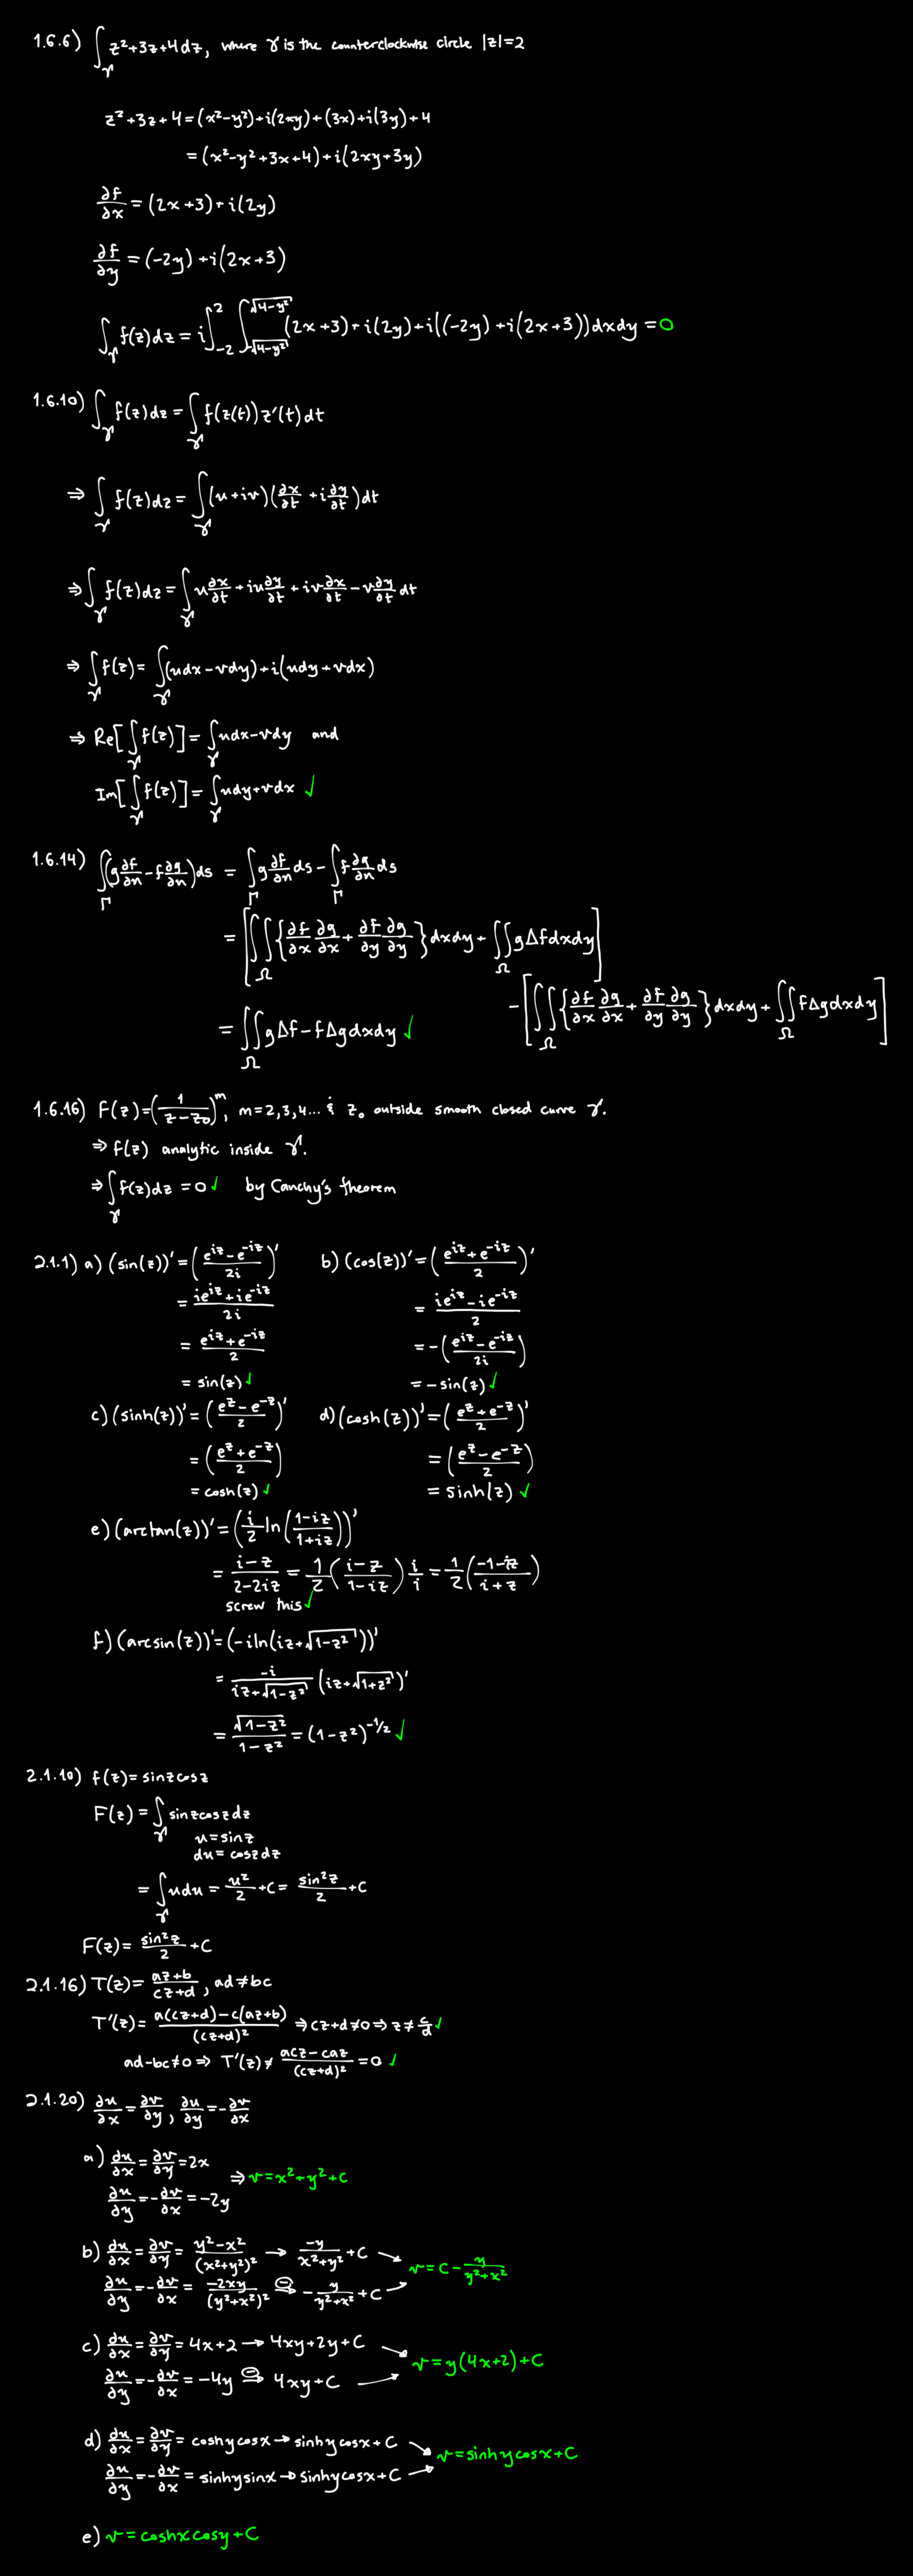 1.6.6) ∫_γ z²+3z+4dz, where γ is the counterclockwise circle |z|=2
z²+3z+4=(x²-y²)+i(2xy)+(3x)+i(3y)+4
=(x²-y²+3x+4)+i(2xy+3y)
∂f/∂x=(2x+3)+i(2y)
∂f/∂y=(-2y)+i(2x+3)
∫_γ f(z)dz=i∫_{-2}^{2}∫_{-√(4-y²)}^{√(4-y²)}(2x+3)+i(2y)+i((-2y)+i(2x+3))dxdy=0
1.6.10) ∫_γ f(z)dz=∫_γ f(z(t))z'(t)dt
⇒∫_γ f(z)dz=∫_γ (u+iv)(∂x/∂t+i∂y/∂t)dt
⇒∫_γ f(z)dz=∫_γ u∂x/∂t+iu∂y/∂t+iv∂x/∂t-v∂y/∂t dt
⇒∫_γ f(z)=∫_γ (udx-vdy)+i(udy+vdx)
⇒Re[∫_γ f(z)]=∫_γ udx-vdy and
Im[∫_γ f(z)]=∫_γ udy+vdx ✓
1.6.14) ∫_Γ(g∂f/∂n-f∂g/∂n)ds = ∫_Γ g∂f/∂n ds-∫_Γ f∂g/∂n ds
=[∬_Ω{∂f/∂x ∂g/∂x+∂f/∂y ∂g/∂y}dxdy+∬_Ω gΔfdxdy]
-[∬_Ω{∂f/∂x ∂g/∂x+∂f/∂y ∂g/∂y}dxdy+∬_Ω fΔgdxdy]
=∬_Ω gΔf-fΔgdxdy ✓
1.6.16) f(z)=(1/(z-z₀))^m, m=2,3,4... & z₀ outside smooth closed curve γ.
⇒f(z) analytic inside γ.
⇒∫_γ f(z)dz=0 ✓ by Cauchy's theorem
2.1.1) a) (sin(z))'=((e^{iz}-e^{-iz})/2i)' b) (cos(z))'=((e^{iz}+e^{-iz})/2)'
=(ie^{iz}+ie^{-iz})/2i =(ie^{iz}-ie^{-iz})/2
=(e^{iz}+e^{-iz})/2 =-((e^{iz}-e^{-iz})/2i)
=sin(z) ✓ =-sin(z) ✓
c) (sinh(z))'=((e^z-e^{-z})/2)' d) (cosh(z))'=((e^z+e^{-z})/2)'
=((e^z+e^{-z})/2) =((e^z-e^{-z})/2)
=cosh(z) ✓ =sinh(z) ✓
e) (arctan(z))'=(i/2 ln((1-iz)/(1+iz)))'
=(i-z)/(2-2iz)=1/2((i-z)/(1-iz))i/i=1/2((-1-iz)/(i+z))
screw this ✓
f) (arcsin(z))'=(-iln(iz+√(1-z²)))'
=-i/(iz+√(1-z²)) (iz+√(1+z²))'
=√(1-z²)/(1-z²)=(1-z²)^{-1/2} ✓
2.1.10) f(z)=sinzcosz
F(z)=∫_γ sinzcoszdz
u=sinz
du=coszdz
=∫_γ udu=u²/2+C=sin²z/2+C
F(z)=sin²z/2+C
2.1.16) T(z)=(az+b)/(cz+d), ad≠bc
T'(z)=(a(cz+d)-c(az+b))/(cz+d)² ⇒cz+d≠0⇒z≠c/d ✓
ad-bc≠0⇒T'(z)≠(acz-caz)/(cz+d)²=0 ✓
2.1.20) ∂u/∂x=∂v/∂y, ∂u/∂y=-∂v/∂x
a) ∂u/∂x=∂v/∂y=2x
⇒v=x²+y²+C
∂u/∂y=-∂v/∂x=-2y
b) ∂u/∂x=∂v/∂y=(y²-x²)/(x²+y²)² → -y/(x²+y²)+C
v=C-y/(y²+x²)
∂u/∂y=-∂v/∂x=-2xy/(y²+x²)² ⊖⇒ -y/(y²+x²)+C
c) ∂u/∂x=∂v/∂y=4x+2→4xy+2y+C
v=y(4x+2)+C
∂u/∂y=-∂v/∂x=-4y ⊖⇒ 4xy+C
d) ∂u/∂x=∂v/∂y=coshycosx→sinhycosx+C
v=sinhycosx+C
∂u/∂y=-∂v/∂x=sinhysinx→sinhycosx+C
e) v=coshxcosy+C